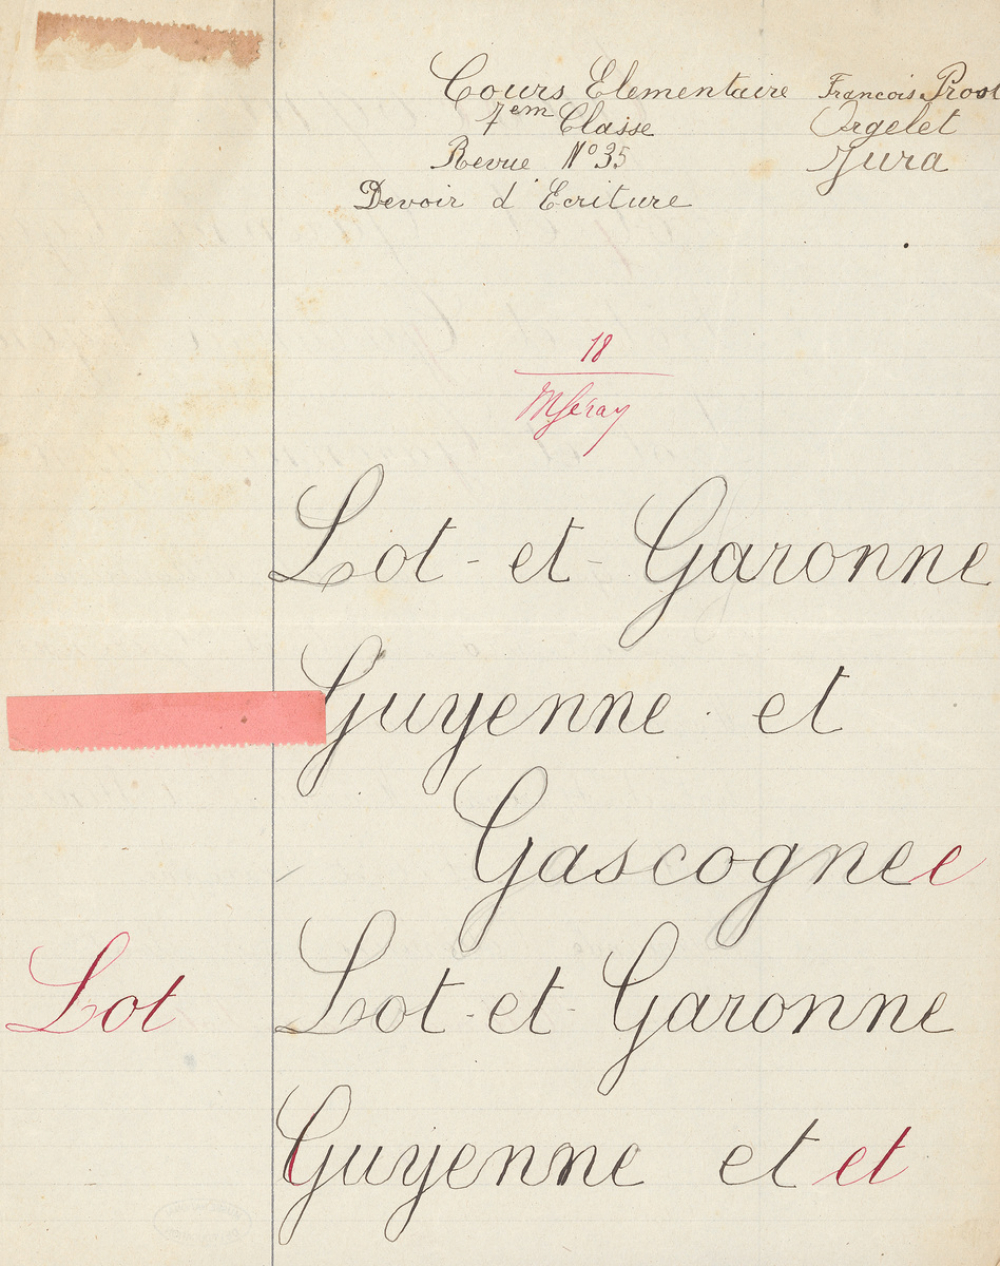 Cours Elementaire François Prost
7em Classe Orgelet
Revue N°35 Jura
Devoir d'Ecriture
18
Lot-et-Garonne
Guyenne et
Gascognee
Lot Lot-et-Garonne
Guyenne et et